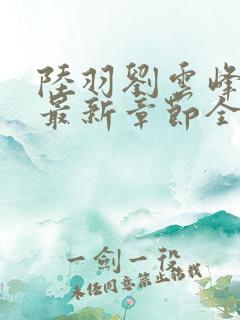 陸羽劉雲峰
最新章節全
一劍一役
未经同意禁止转载